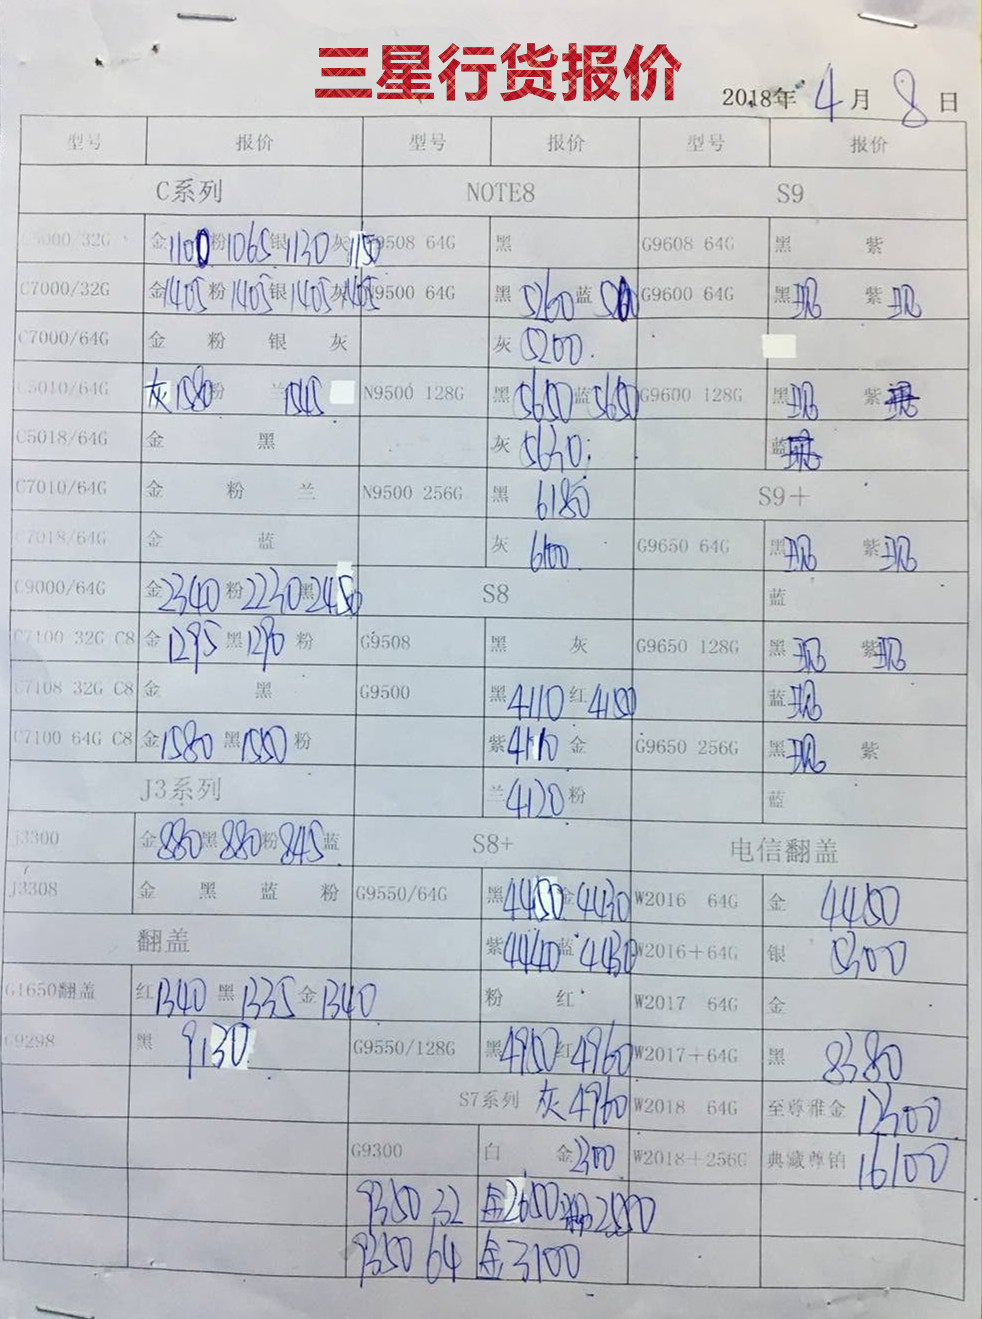 三星行货报价
2018年 4月 8日
型号 报价 型号 报价 型号 报价
C系列 NOTE8 S9
000/32G 金1100 粉1065 银1130 灰1150 9508 64G 黑 G9608 64G 黑 紫
C7000/32G 金1405 粉1405 银1405 灰1405 N9500 64G 黑5260 蓝 G9600 64G 黑现 紫现
C7000/64G 金 粉 银 灰 灰5200
C5010/64G 灰1580 粉 兰1545 N9500 128G 黑5650 蓝5650 G9600 128G 黑现 紫
C5018/64G 金 黑 灰5630 蓝
C7010/64G 金 粉 兰 N9500 256G 黑6180 S9+
C7018/64G 金 蓝 灰6100 G9650 64G 黑现 紫现
C9000/64G 金2340 粉2230 黑2450 S8 蓝
C7100 32G C8 金1295 黑1290 粉 G9508 黑 灰 G9650 128G 黑现 紫现
C7108 32G C8 金 黑 G9500 黑4110 红4180 蓝现
C7100 64G C8 金1580 黑1550 粉 紫4110 金 G9650 256G 黑现 紫
J3系列 兰4120 粉 蓝
J3300 金880 黑880 粉845 蓝 S8+ 电信翻盖
J3308 金 黑 蓝 粉 G9550/64G 黑4450 金4430 W2016 64G 金 4450
翻盖 紫4440 蓝4430 W2016+64G 银 5300
G1650翻盖 红1340 黑1335 金1340 粉 红 W2017 64G 金
G9298 黑 9130 G9550/128G 黑4950 红4960 W2017+64G 黑 8380
S7系列 灰4960 W2018 64G 至尊雅金 12300
G9300 白 金2300 W2018+256G 典藏尊铂 16100
9350 32 金2650
9350 64 金3100